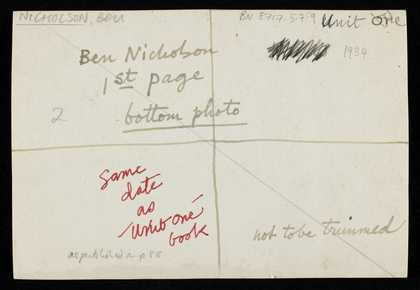 NICHOLSON, BEN
Unit One
1934
Ben Nicholson
1st page
2
bottom photo
Same
date
as
'Unit One'
book
not to be trimmed
as published in p 88